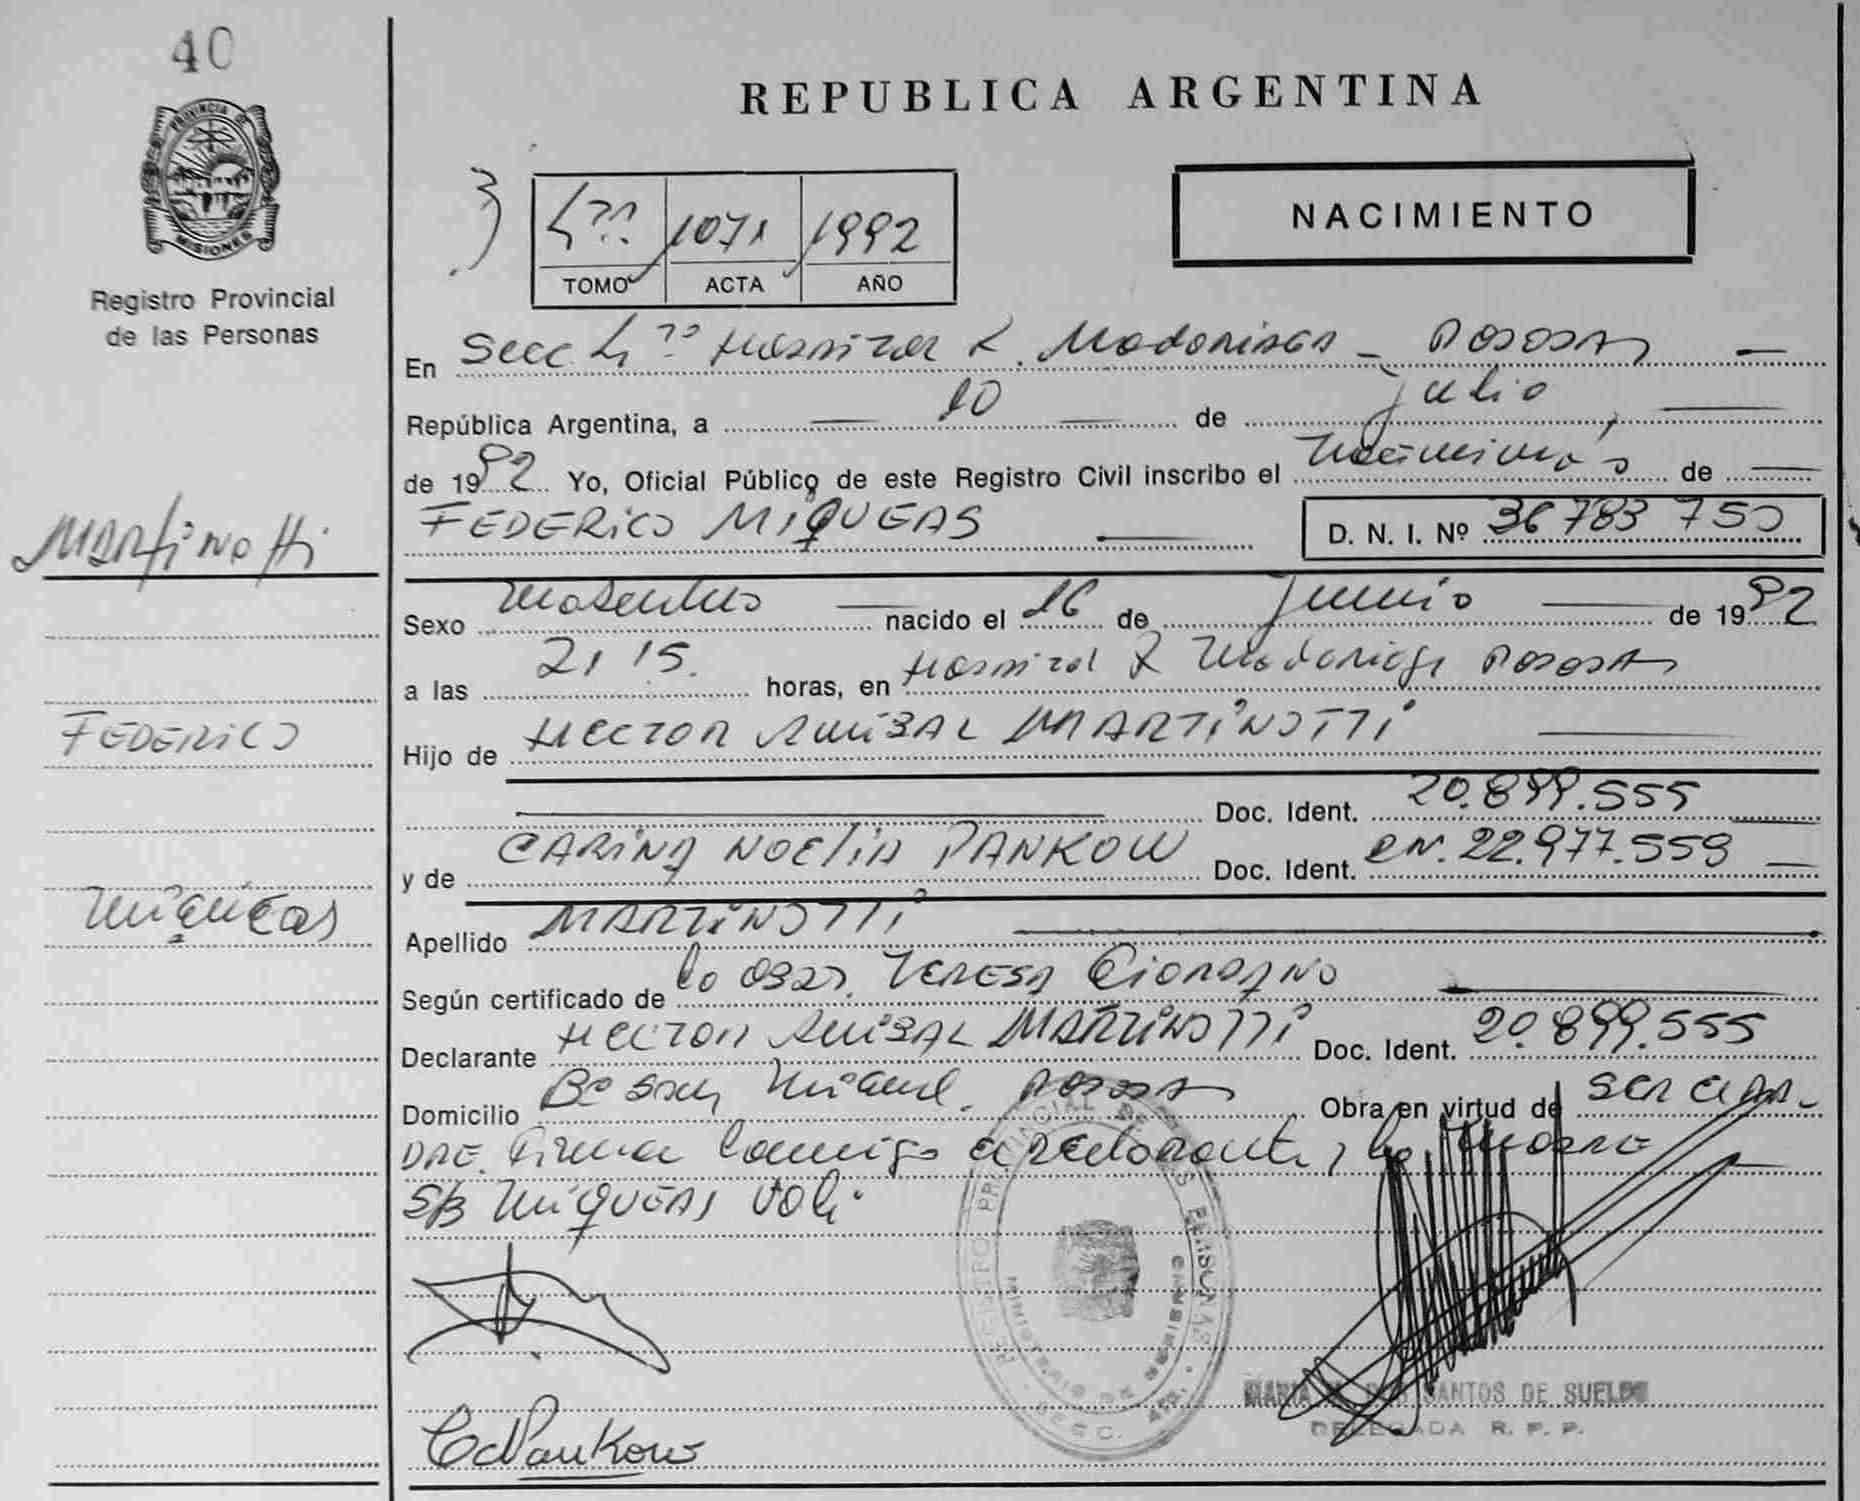 40
PROVINCIA DE
MISIONES
Registro Provincial
de las Personas
REPUBLICA ARGENTINA
NACIMIENTO
4?? 1071 1992
TOMO ACTA AÑO
En Secc 4?? Hospital R. Madariaga - Posadas
República Argentina, a 10 de julio
de 1992 Yo, Oficial Público de este Registro Civil inscribo el nacimiento de
FEDERICO MIQUEAS D. N. I. Nº 36783750
Martinotti
Sexo masculino nacido el 16 de Junio de 1992
a las 21 15. horas, en Hospital R Madariaga Posadas
FEDERICO
Hijo de HECTOR ANIBAL MARTINOTTI
Doc. Ident. 20.899.555
y de CARINA NOELIA PANKOW Doc. Ident. 22.977.559
Miqueas
Apellido MARTINOTTI
Según certificado de la TERESA
Declarante HECTOR ANIBAL MARTINOTTI Doc. Ident. 20.899.555
Domicilio Bº San Miguel. Posadas Obra en virtud de ser el PA-
DRE. Firma conmigo el declarante, la madre
S/B MIQUEAS Vale
REGISTRO PROVINCIAL DE LAS PERSONAS
MINISTERIO DE GOBIERNO
C. Pankow
MARIA SANTOS DE SUELDO
DELEGADA R. P. P.